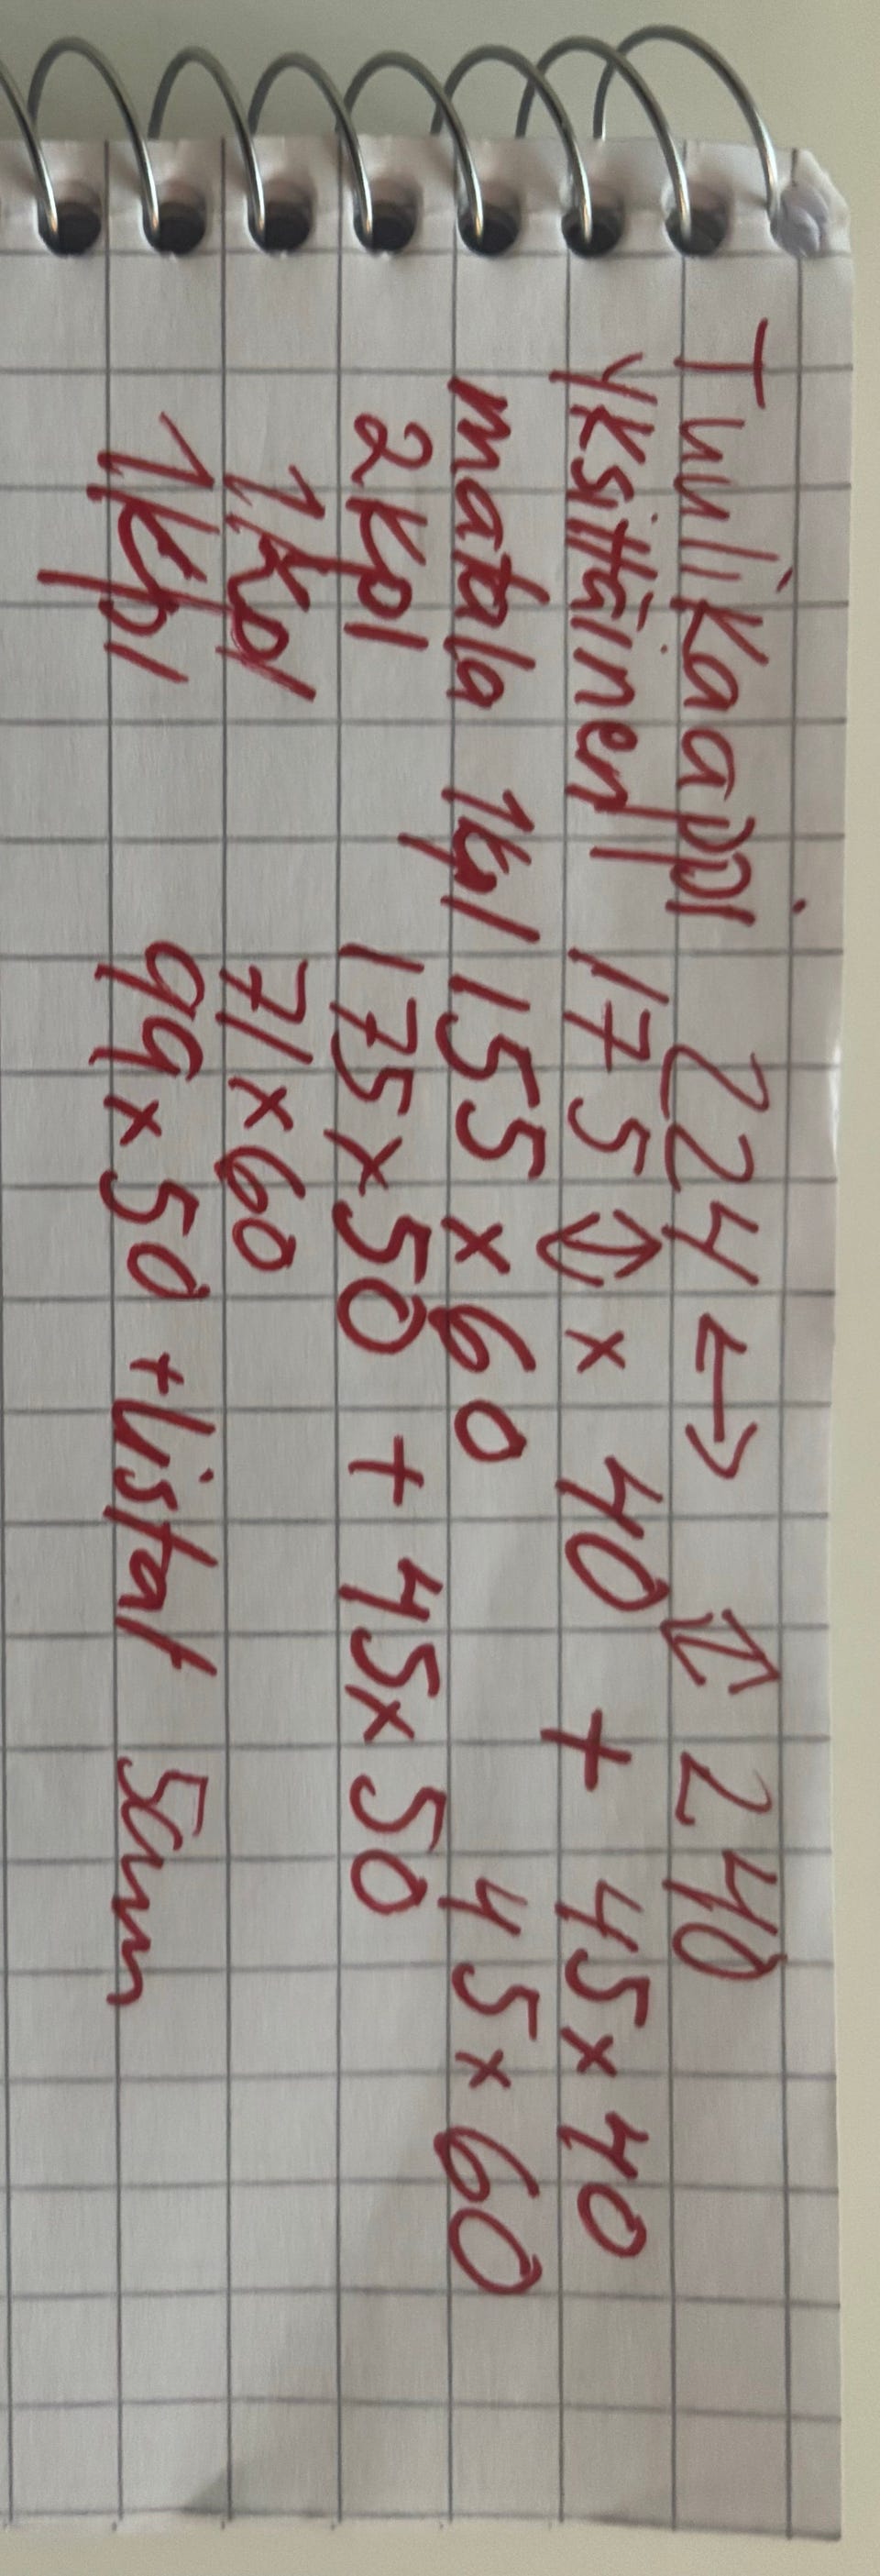 Tuulikaappi 224 ↔ ↕ 240
yksittäinen 175 ↕ x 40 + 45x40
matala 1kpl 155 x 60 45x60
2kpl 175x50 + 45x50
1kpl 71x60
1kpl 99x50 +listat 5cm